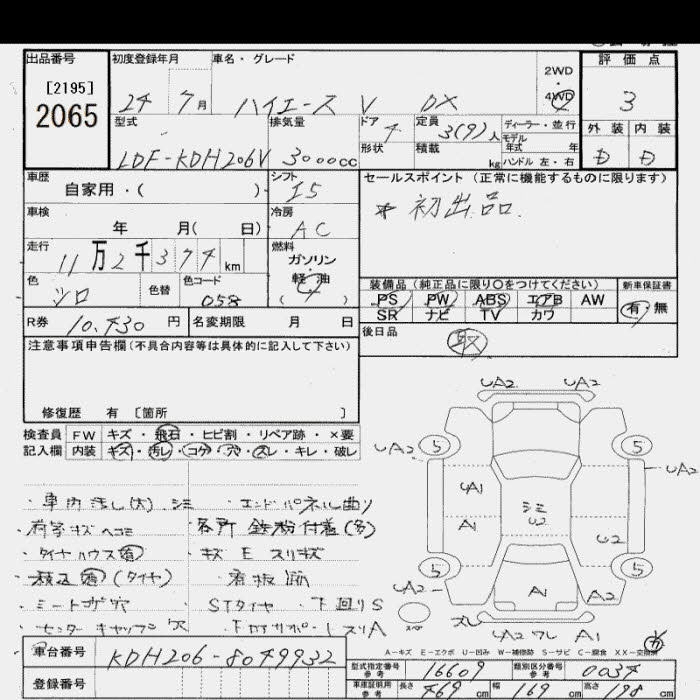 出品番号 初度登録年月 車名・グレード 評価点
[2195] 2WD
2065 24 7月 ハイエース V DX 4WD 3
型式 排気量 ドア 定員 ディーラー・並行 外装 内装
4 3(9)人 モデル年式 年
LDF-KDH206V 3000cc 形状 積載 kg ハンドル 左・右 D D
車歴 シフト セールスポイント(正常に機能するものに限ります)
自家用・( ) I5
* 初出品.
車検 冷房
年 月( 日) AC
走行 燃料
11万2千374km ガソリン
軽油
色 色替 色コード ( )
シロ 058
装備品(純正品に限り○をつけてください) 新車保証書
PS PW ABS エアB AW 有・無
SR ナビ TV カワ
R券 10,430円 名変期限 月 日
後日品 取
注意事項申告欄(不具合内容等は具体的に記入して下さい)
修復歴 有 [箇所 ]
検査員 FW キズ・飛石・ヒビ割・リペア跡・×要
記入欄 内装 キズ・汚レ・コゲ・穴・スレ・キレ・破レ
UA2 UA2
UA2 5 5 UA2
UA1
A1 シミ U2 U2
5 5
UA2 A1 A2
スペア スレ
UA2 ワレ A1
・車内汚し(大)シミ ・エンドパネル曲り
・荷室キズヘコミ ・各所鉄粉付着(多)
・タイヤハウス・キズEスリキズ
(タイヤ) ・看板跡
・シートコゲ穴 STタイヤ ・下回りS
・センターキャップ欠 ・下カリサポートスリA
A-キズ E-エクボ U-凹み W-補修跡 S-サビ C-腐食 XX-交換済
車台番号 KDH206-8049932
登録番号
型式指定番号 参考 16609 類別区分番号 参考 0034
車庫証明用 参考 長さ 469cm 幅 169cm 高さ 198cm